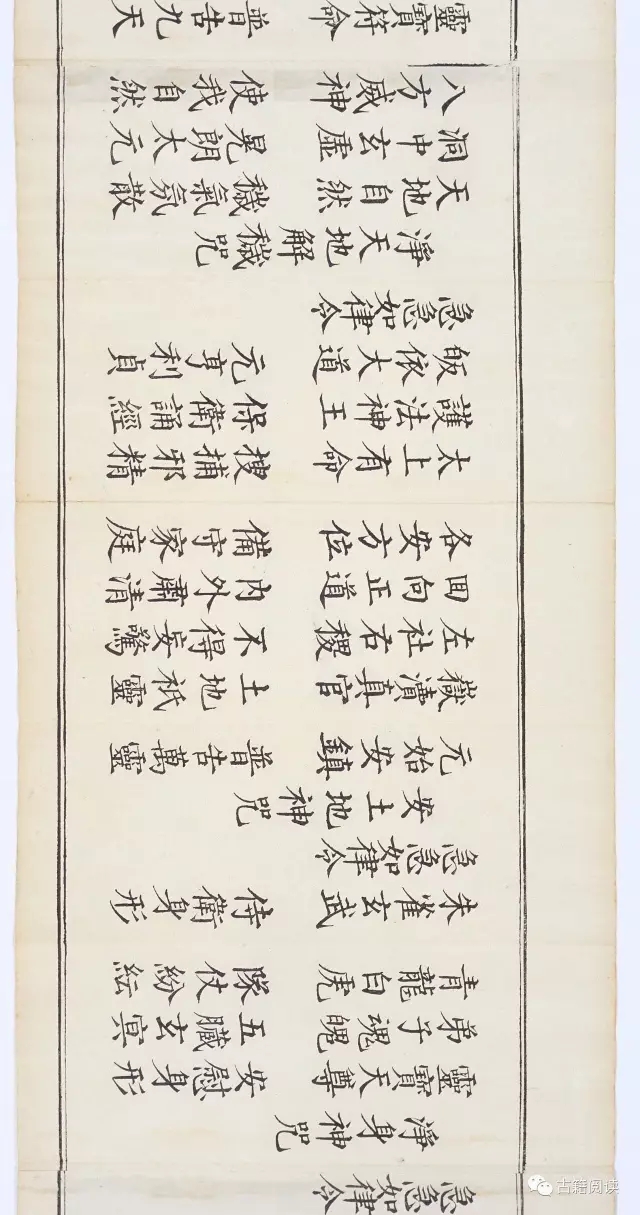 急急如律令
淨身神咒
靈寶天尊 安慰身形
弟子魂魄 五臟玄冥
青龍白虎 隊仗紛紜
朱雀玄武 侍衛身形
急急如律令
安土地神咒
元始安鎮 普告萬靈
嶽瀆真官 土地祇靈
左社右稷 不得妄驚
回向正道 內外肅清
各安方位 備守家庭
太上有命 搜捕邪精
護法神王 保衛誦經
皈依大道 元亨利貞
急急如律令
淨天地解穢咒
天地自然 穢氣氛散
洞中玄虛 晃朗太元
八方威神 使我自然
靈寶符命 普告九天
古籍阅读